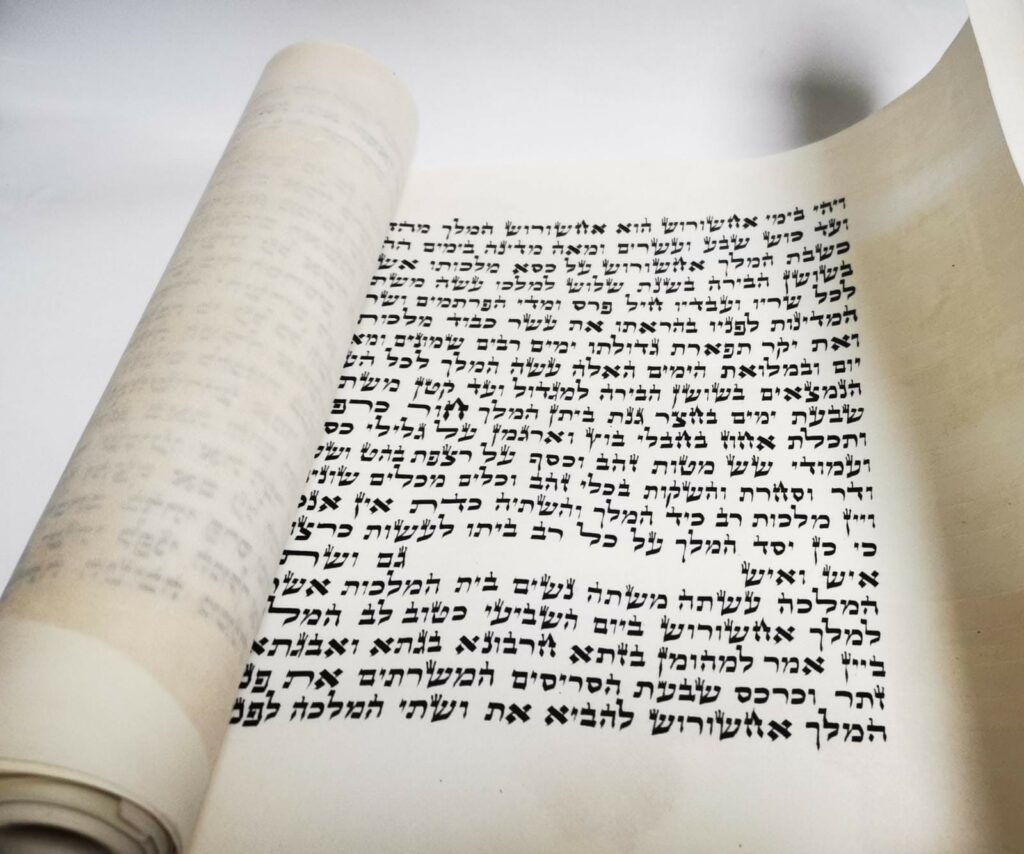 ויהי בימי אחשורוש הוא אחשורוש המלך מהד
ועד כוש שבע ועשרים ומאה מדינה בימים הה
כשבת המלך אחשורוש על כסא מלכותו אש
בשושן הבירה בשנת שלוש למלכו עשה משת
לכל שריו ועבדיו חיל פרס ומדי הפרתמים ושר
המדינות לפניו בהראתו את עשר כבוד מלכות
ואת יקר תפארת גדולתו ימים רבים שמונים ומא
יום ובמלואת הימים האלה עשה המלך לכל הע
הנמצאים בשושן הבירה למגדול ועד קטן משת
שבעת ימים בחצר גנת ביתן המלך חור כרפ
ותכלת אחוז בחבלי בוץ וארגמן על גלילי כס
ועמודי שש מטות זהב וכסף על רצפת בהט ושש
ודר וסחרת והשקות בכלי זהב וכלים מכלים שונים
ויין מלכות רב כיד המלך והשתיה כדת אין אנס
כי כן יסד המלך על כל רב ביתו לעשות כרצו
איש ואיש גם ושת
המלכה עשתה משתה נשים בית המלכות אשר
למלך אחשורוש ביום השביעי כטוב לב המל
ביין אמר למהומן בזתא חרבונא בגתא ואבגתא
זתר וכרכס שבעת הסריסים המשרתים את פנ
המלך אחשורוש להביא את ושתי המלכה לפנ